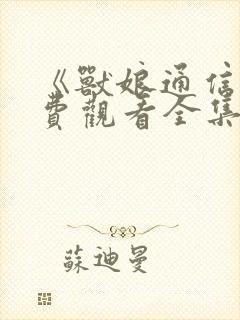 《獸娘通信
費觀看全集
蘇迪曼